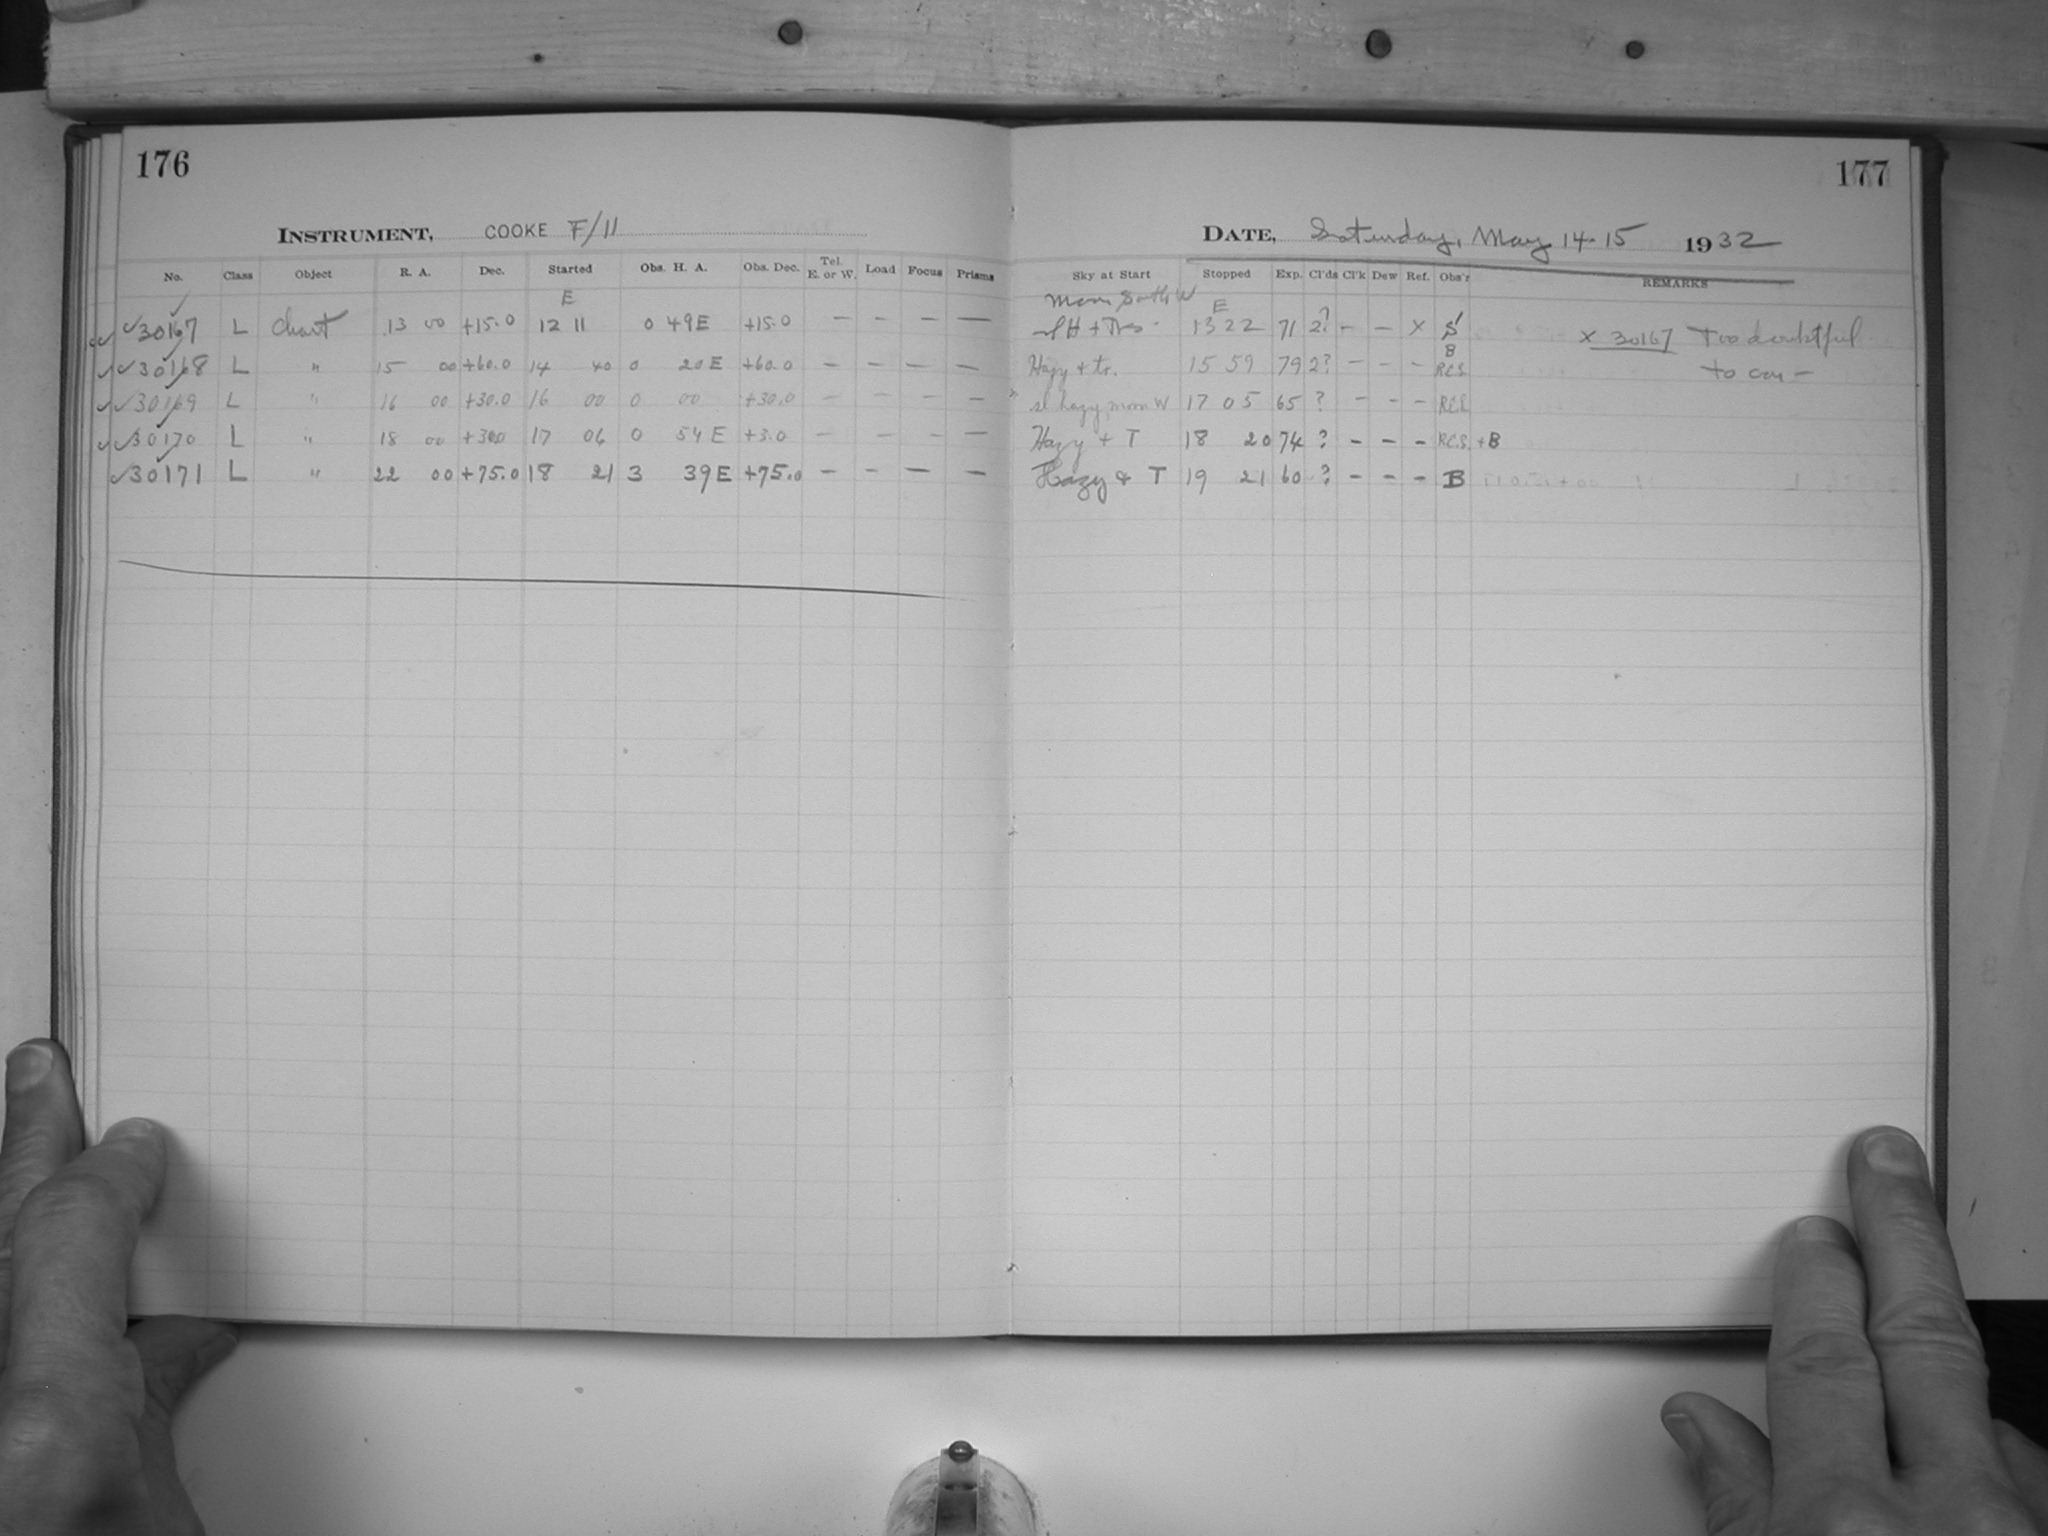 176
INSTRUMENT, COOKE F/11
No. Class Object R. A. Dec. Started Obs. H. A. Obs. Dec. Tel. E. or W. Load Focus Prisms
E
30167 L Chart 13 00 +15.0 12 11 0 49E +15.0 — — — —
30168 L " 15 00 +60.0 14 40 0 20E +60.0 — — — —
30169 L " 16 00 +30.0 16 00 0 00 +30.0 — — — —
30170 L " 18 00 +3.0 17 06 0 54E +3.0 — — — —
30171 L " 22 00 +75.0 18 21 3 39E +75.0 — — — —
177
DATE, Saturday, May 14-15 1932
Sky at Start Stopped Exp. Cl'ds Cl'k Dew Ref. Obs'r REMARKS
Moon W E
13 22 71 2? — — X S B X 30167 Too doubtful
Hazy + tr. 15 59 79 2? — — — RCS to
sl hazy moon W 17 05 65 ? — — — RCS
Hazy + T 18 20 74 ? — — — RCS + B
Hazy & T 19 21 60 ? — — — B